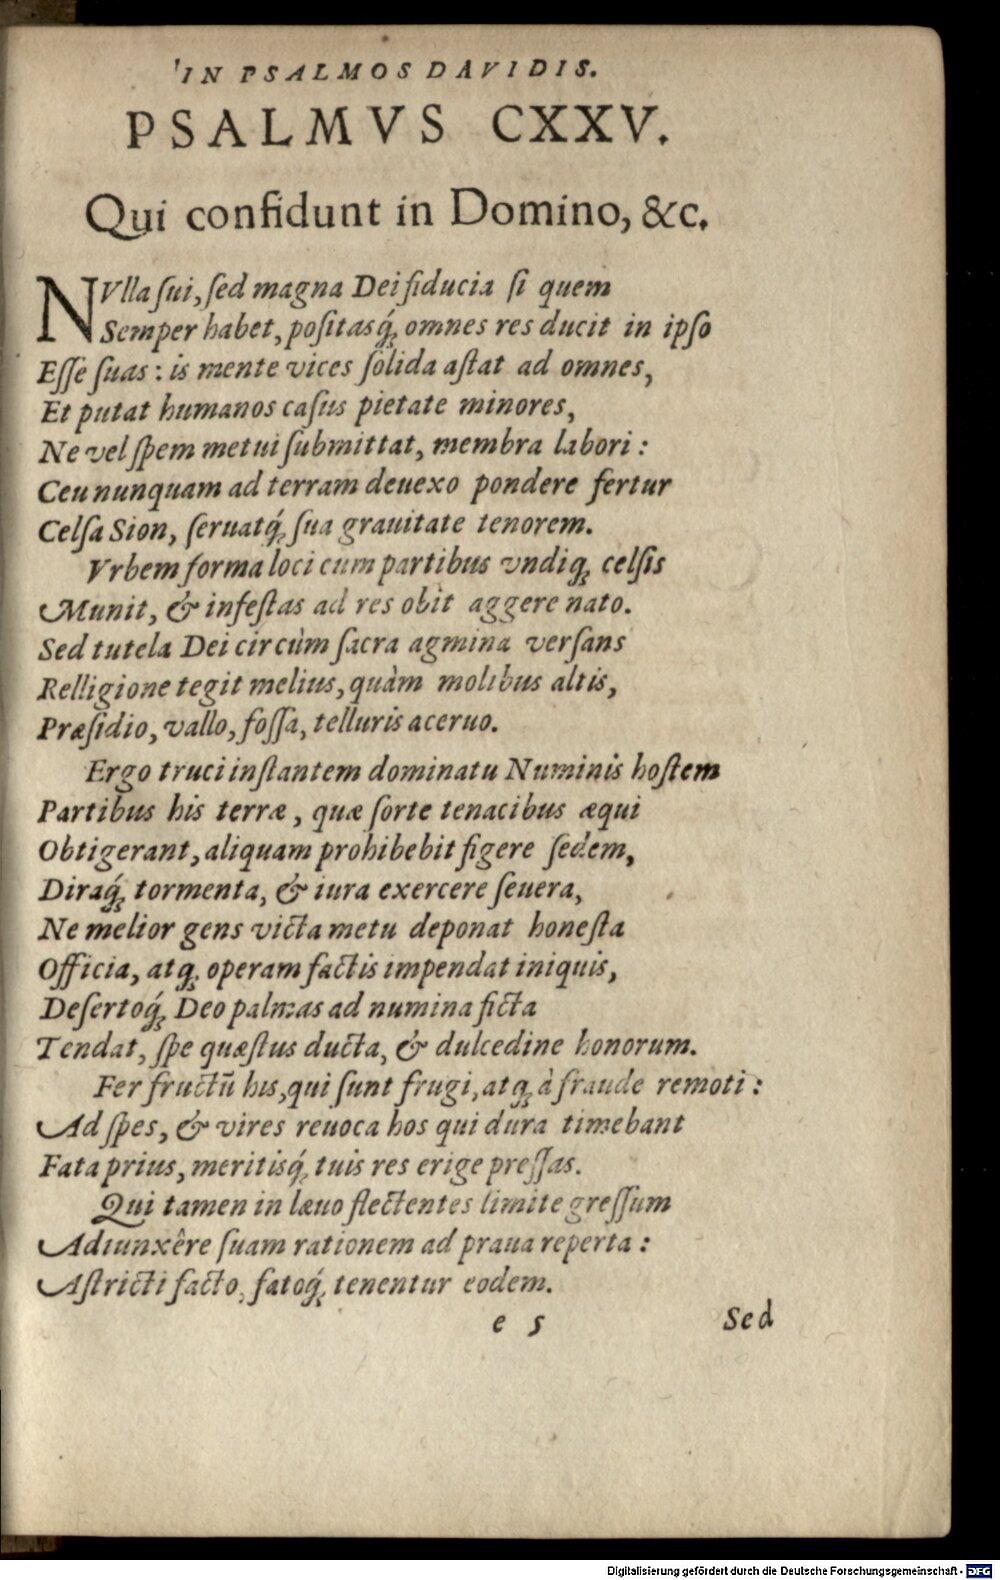 IN PSALMOS DAVIDIS.
PSALMVS CXXV.
Qui confidunt in Domino, &c.
NVlla ſui, ſed magna Dei fiducia ſi quem
Semper habet, poſitasq́; omnes res ducit in ipſo
Eſſe ſuas: is mente vices ſolida aſtat ad omnes,
Et putat humanos caſus pietate minores,
Ne vel ſpem metui ſubmittat, membra labori:
Ceu nunquam ad terram deuexo pondere fertur
Celſa Sion, ſeruatq́; ſua grauitate tenorem.
Vrbem forma loci cum partibus vndiq; celſis
Munit, & infeſtas ad res obit aggere nato.
Sed tutela Dei circùm ſacra agmina verſans
Relligione tegit melius, quàm molibus altis,
Præſidio, vallo, foſſa, telluris aceruo.
Ergo truci inſtantem dominatu Numinis hoſtem
Partibus his terræ, quæ ſorte tenacibus æqui
Obtigerant, aliquam prohibebit figere ſedem,
Diraq́; tormenta, & iura exercere ſeuera,
Ne melior gens victa metu deponat honeſta
Officia, atq; operam factis impendat iniquis,
Deſertoq́; Deo palmas ad numina ficta
Tendat, ſpe quæſtus ducta, & dulcedine honorum.
Fer fructū his, qui ſunt frugi, atq; à fraude remoti:
Ad ſpes, & vires reuoca hos qui dura timebant
Fata prius, meritisq́; tuis res erige preſſas.
Qui tamen in læuo flectentes limite greſſum
Adiunxêre ſuam rationem ad praua reperta:
Aſtricti facto, fatoq́; tenentur eodem.
e 5 Sed
Digitalisierung gefördert durch die Deutsche Forschungsgemeinschaft - DFG